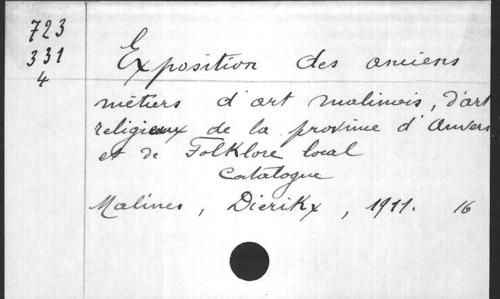 723
331
4
Exposition des anciens
métiers d'art malinois, d'art
religieux de la province d'Anvers
et de Folklore local
Catalogue
Malines, Dierikx, 1911. 16